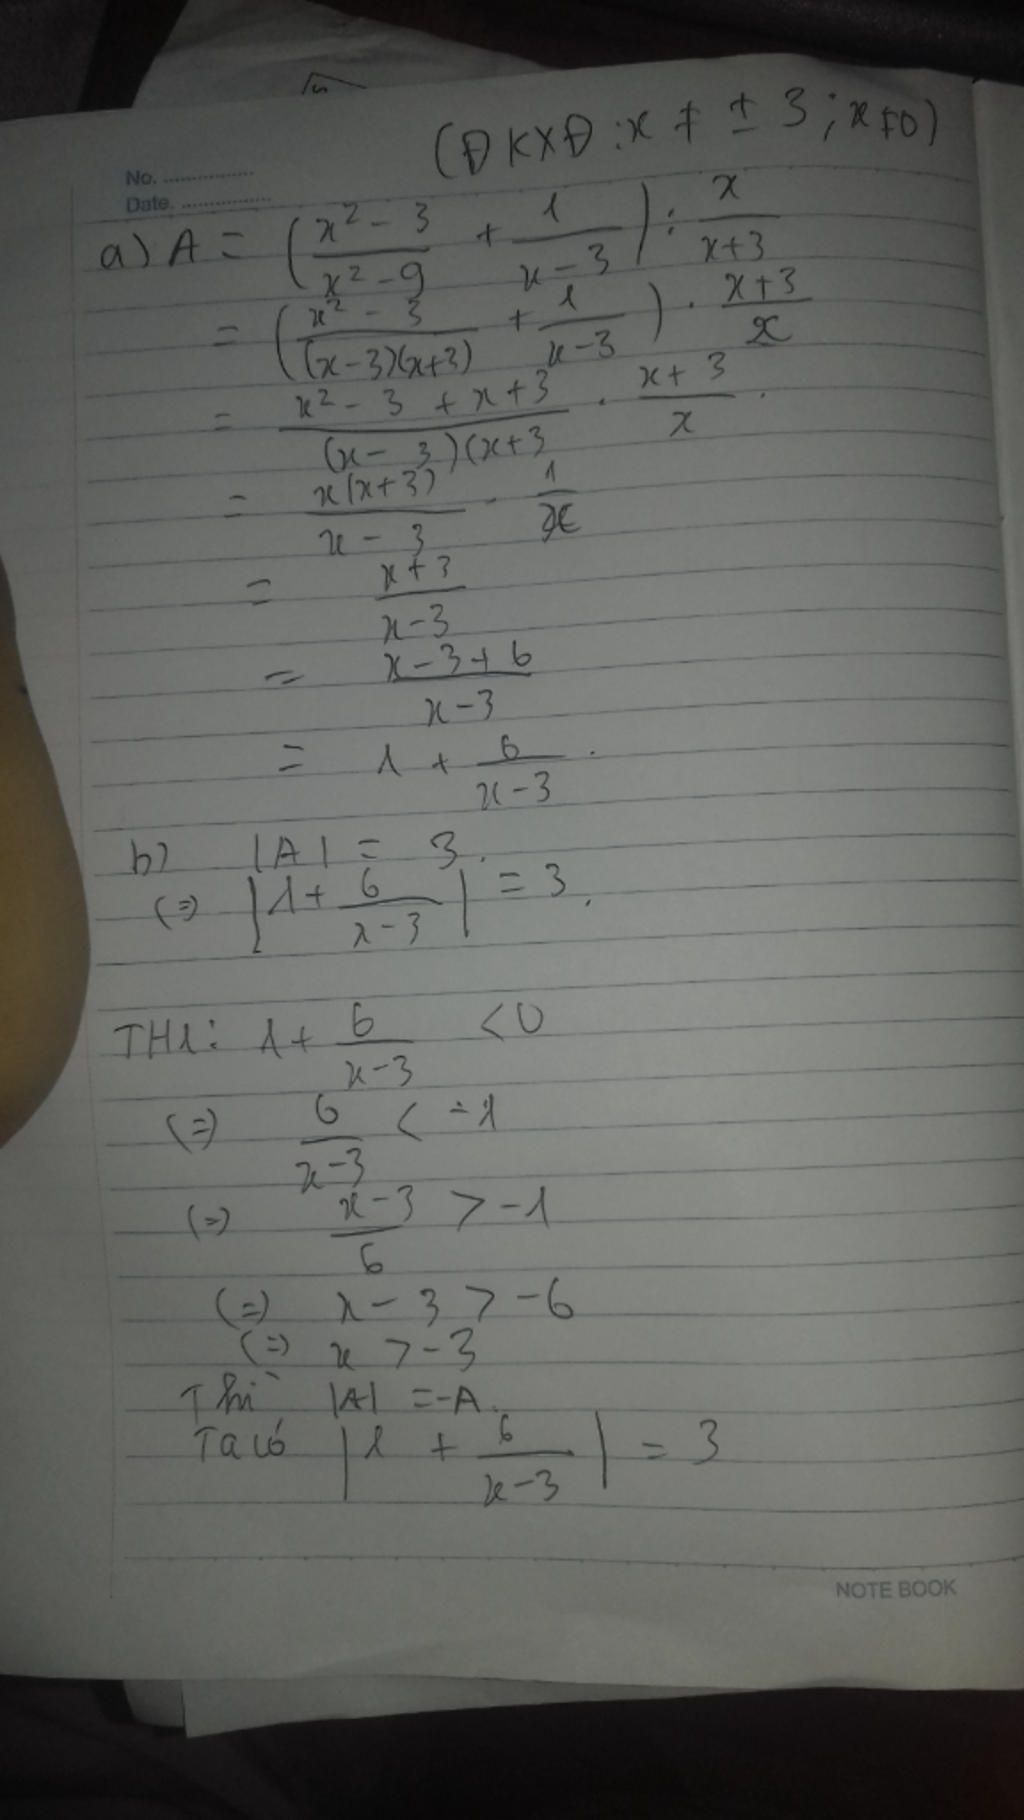 (ĐKXĐ: x ≠ ± 3; x ≠ 0)
No. ................
Date. ................
a) A = ( (x² - 3)/(x² - 9) + 1/(x - 3) ) : x/(x+3)
= ( (x² - 3)/((x-3)(x+3)) + 1/(x-3) ) . (x+3)/x
= (x² - 3 + x + 3)/((x - 3)(x+3) . (x+3)/x .
= x(x+3)/(x - 3) . 1/x
= (x+3)/(x-3)
= (x-3+6)/(x-3)
= 1 + 6/(x-3) .
b) |A| = 3.
(=) |1 + 6/(x-3)| = 3.
TH1: 1 + 6/(x-3) < 0
(=) 6/(x-3) < -1
(=) (x-3)/6 > -1
(=) x - 3 > -6
(=) x > -3
Thì |A| = -A.
Ta có |1 + 6/(x-3)| = 3
NOTE BOOK